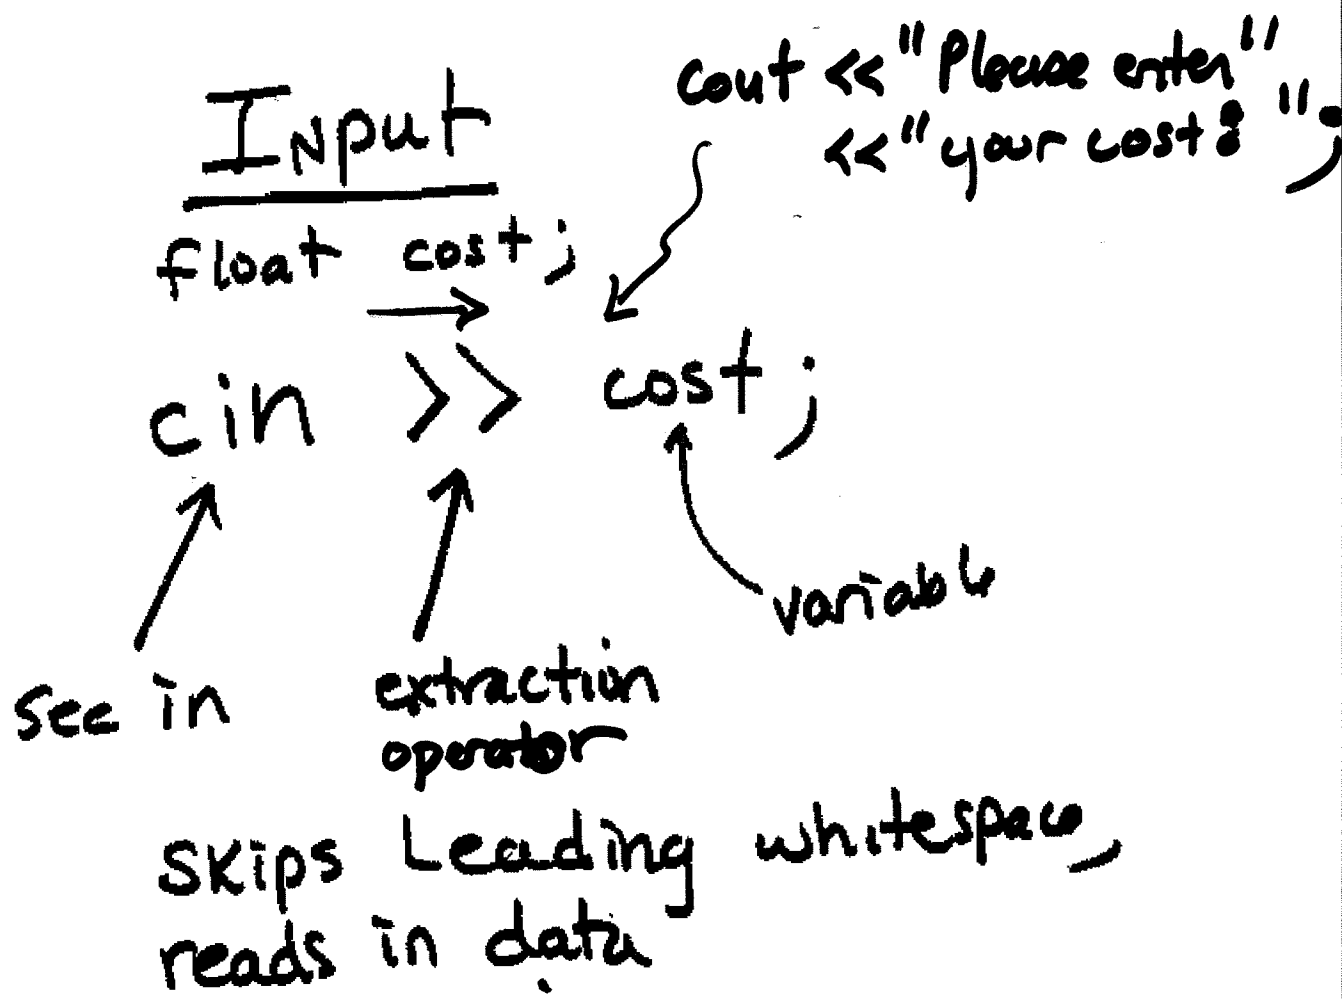 Input
cout << "Please enter"
<< "your cost: ";
float cost;
cin >> cost;
variable
see in
extraction
operator
skips leading whitespace,
reads in data